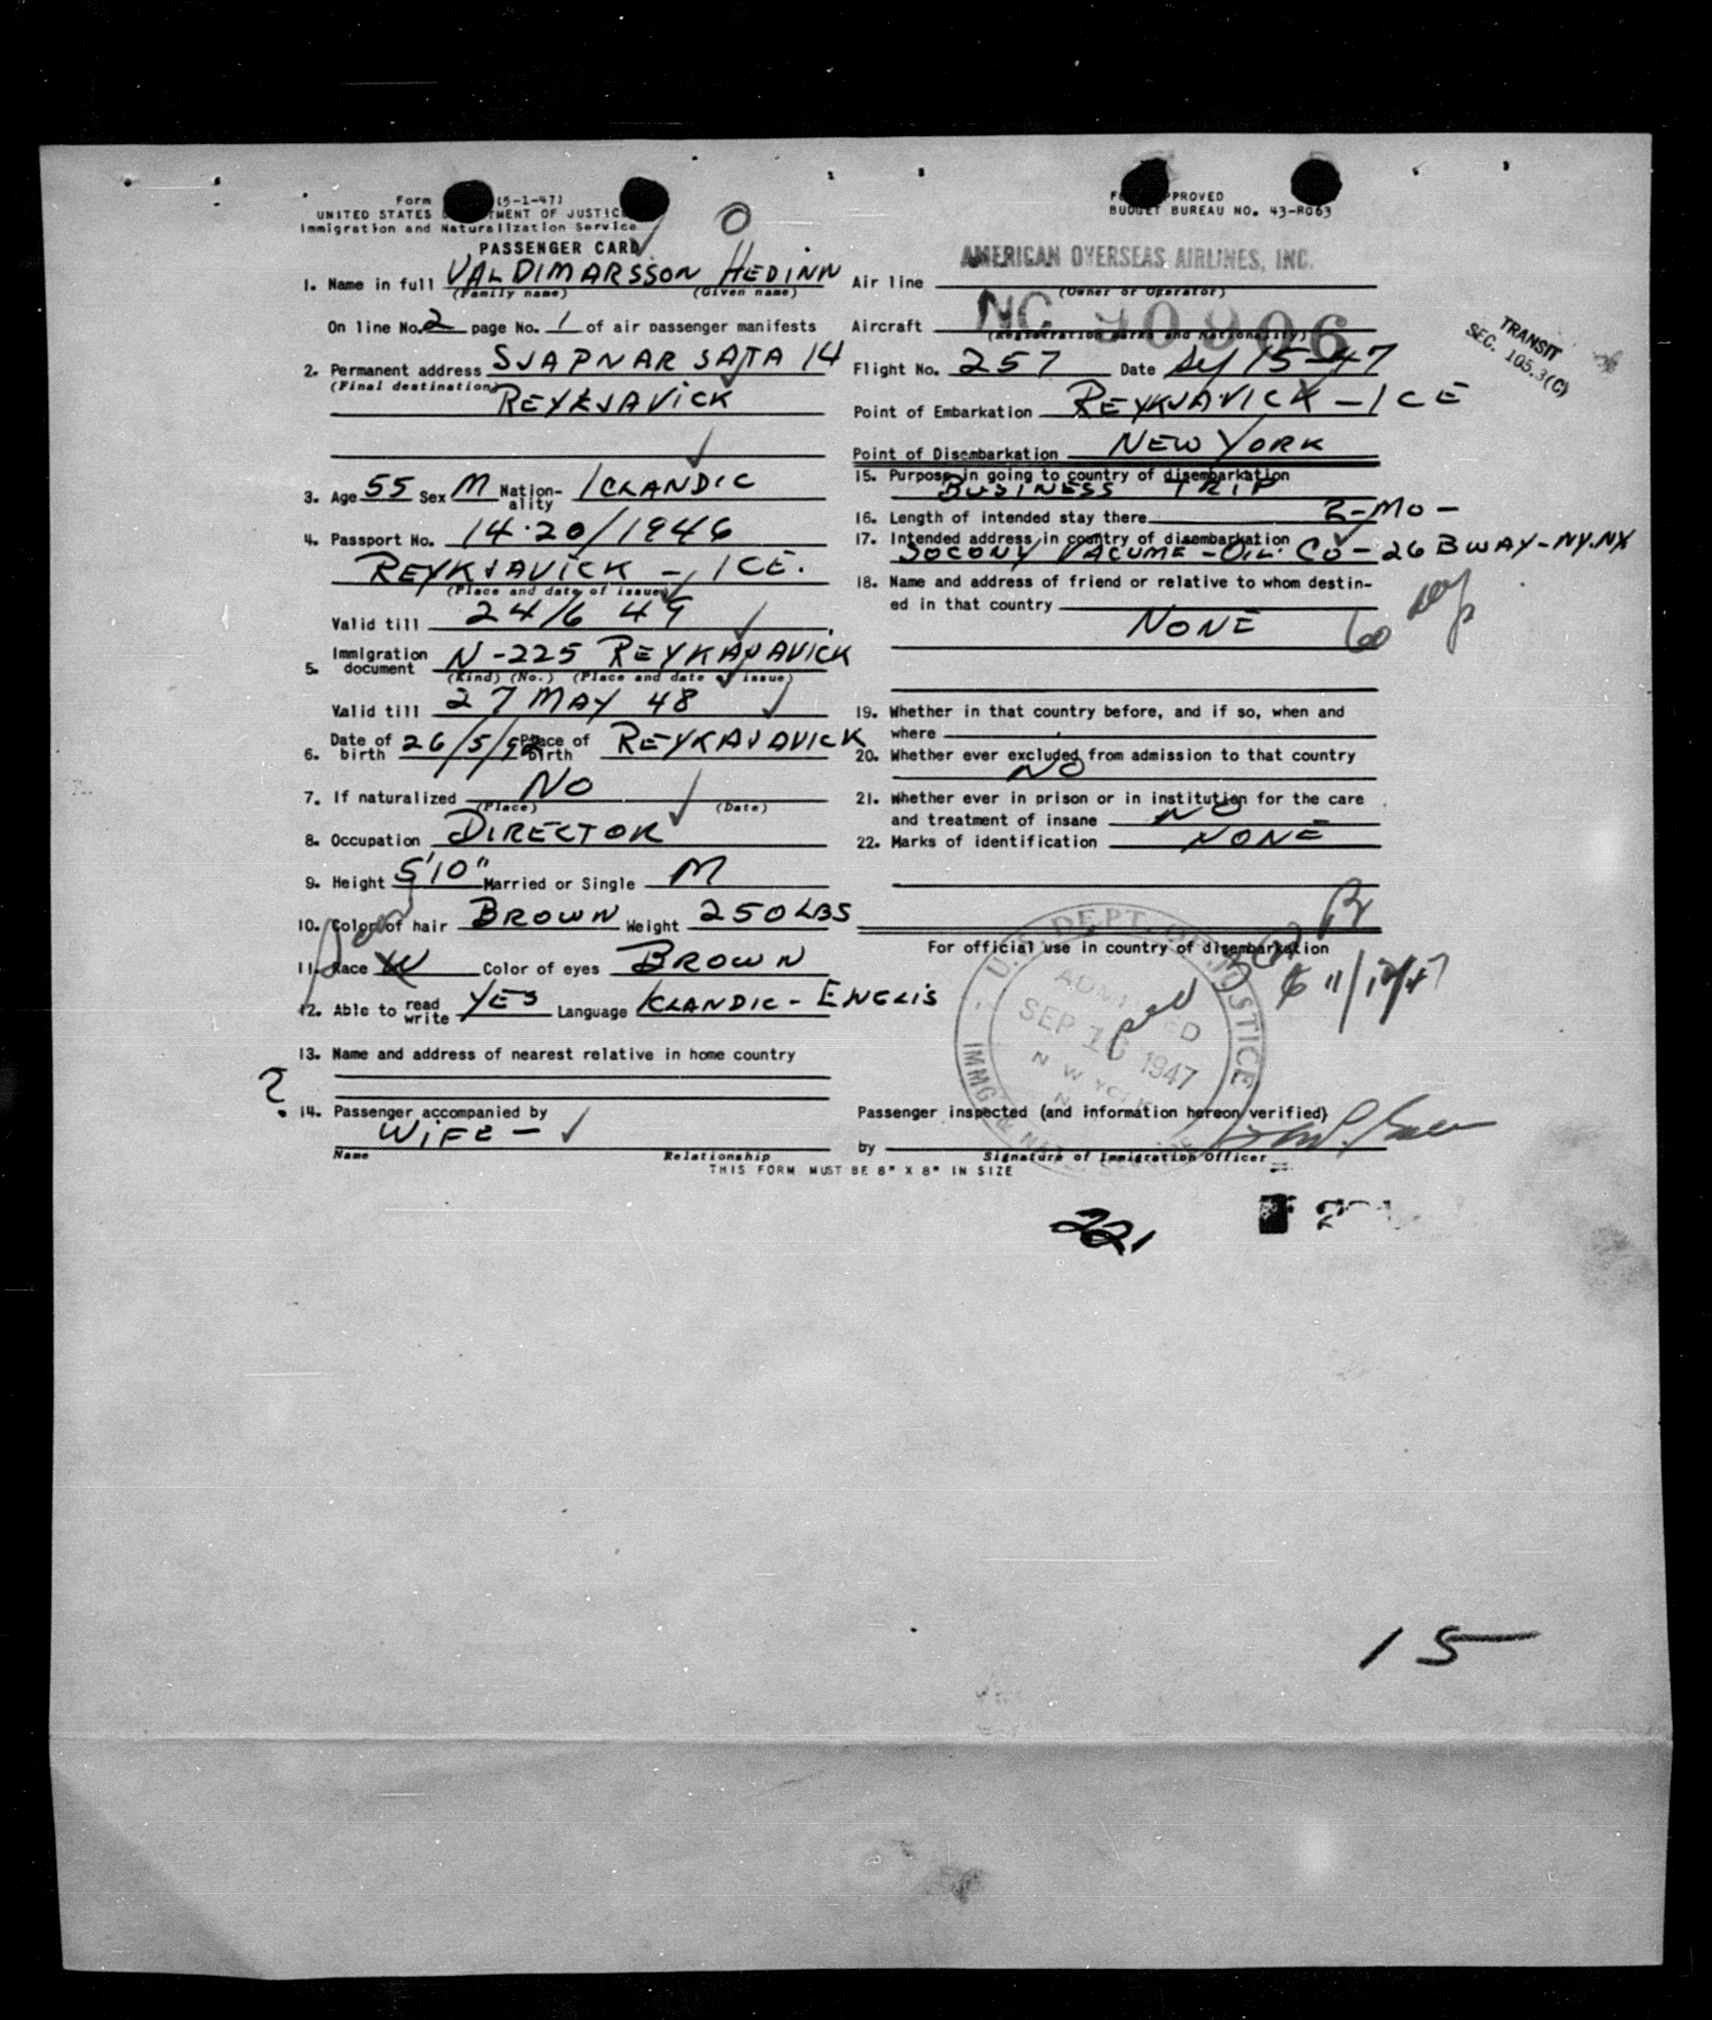 Form (5-1-47)
UNITED STATES DEPARTMENT OF JUSTICE
Immigration and Naturalization Service
PASSENGER CARD
APPROVED
BUDGET BUREAU NO. 43-R063
1. Name in full VALDIMARSSON HEDINN
(Family name) (Given name)
On line No. 2 page No. 1 of air passenger manifests
2. Permanent address SJAPNAR SATA 14
(Final destination)
REYKJAVICK
3. Age 55 Sex M Nation-ality ICLANDIC
4. Passport No. 14.20/1946
REYKJAVICK - ICE.
(Place and date of issue)
Valid till 24/6 49
5. Immigration document N-225 REYKAJAVICK
(Kind) (No.) (Place and date of issue)
Valid till 27 MAY 48
6. Date of birth 26/5/92 Place of birth REYKAJAVICK
7. If naturalized NO
(Place) (Date)
8. Occupation DIRECTOR
9. Height 5'10" Married or Single M
10. Color of hair BROWN Weight 250 LBS
11. Race W Color of eyes BROWN
12. Able to read write YES Language ICLANDIC - ENGLIS
13. Name and address of nearest relative in home country
?
14. Passenger accompanied by
WIFE -
Name Relationship
THIS FORM MUST BE 8" X 8" IN SIZE
AMERICAN OVERSEAS AIRLINES, INC.
Air line
(Owner or Operator)
Aircraft NC 90906
(Registration marks and Nationality)
Flight No. 257 Date Sep 15-47
TRANSIT
SEC. 105.3(C)
Point of Embarkation REYKJAVICK - ICE
Point of Disembarkation NEW YORK
15. Purpose in going to country of disembarkation
BUSINESS TRIP
16. Length of intended stay there 2-MO-
17. Intended address in country of disembarkation
SOCONY VACUME-OIL CO - 26 BWAY-NY.NY
18. Name and address of friend or relative to whom destin-
ed in that country
NONE
60 days
19. Whether in that country before, and if so, when and
where
20. Whether ever excluded from admission to that country
NO
21. Whether ever in prison or in institution for the care
and treatment of insane NO
22. Marks of identification NONE
For official use in country of disembarkation
U.S. DEPT. OF JUSTICE
ADMITTED
SEP 16 1947
11/12/47
Passenger inspected (and information hereon verified)
by
Signature of Immigration Officer
221
15